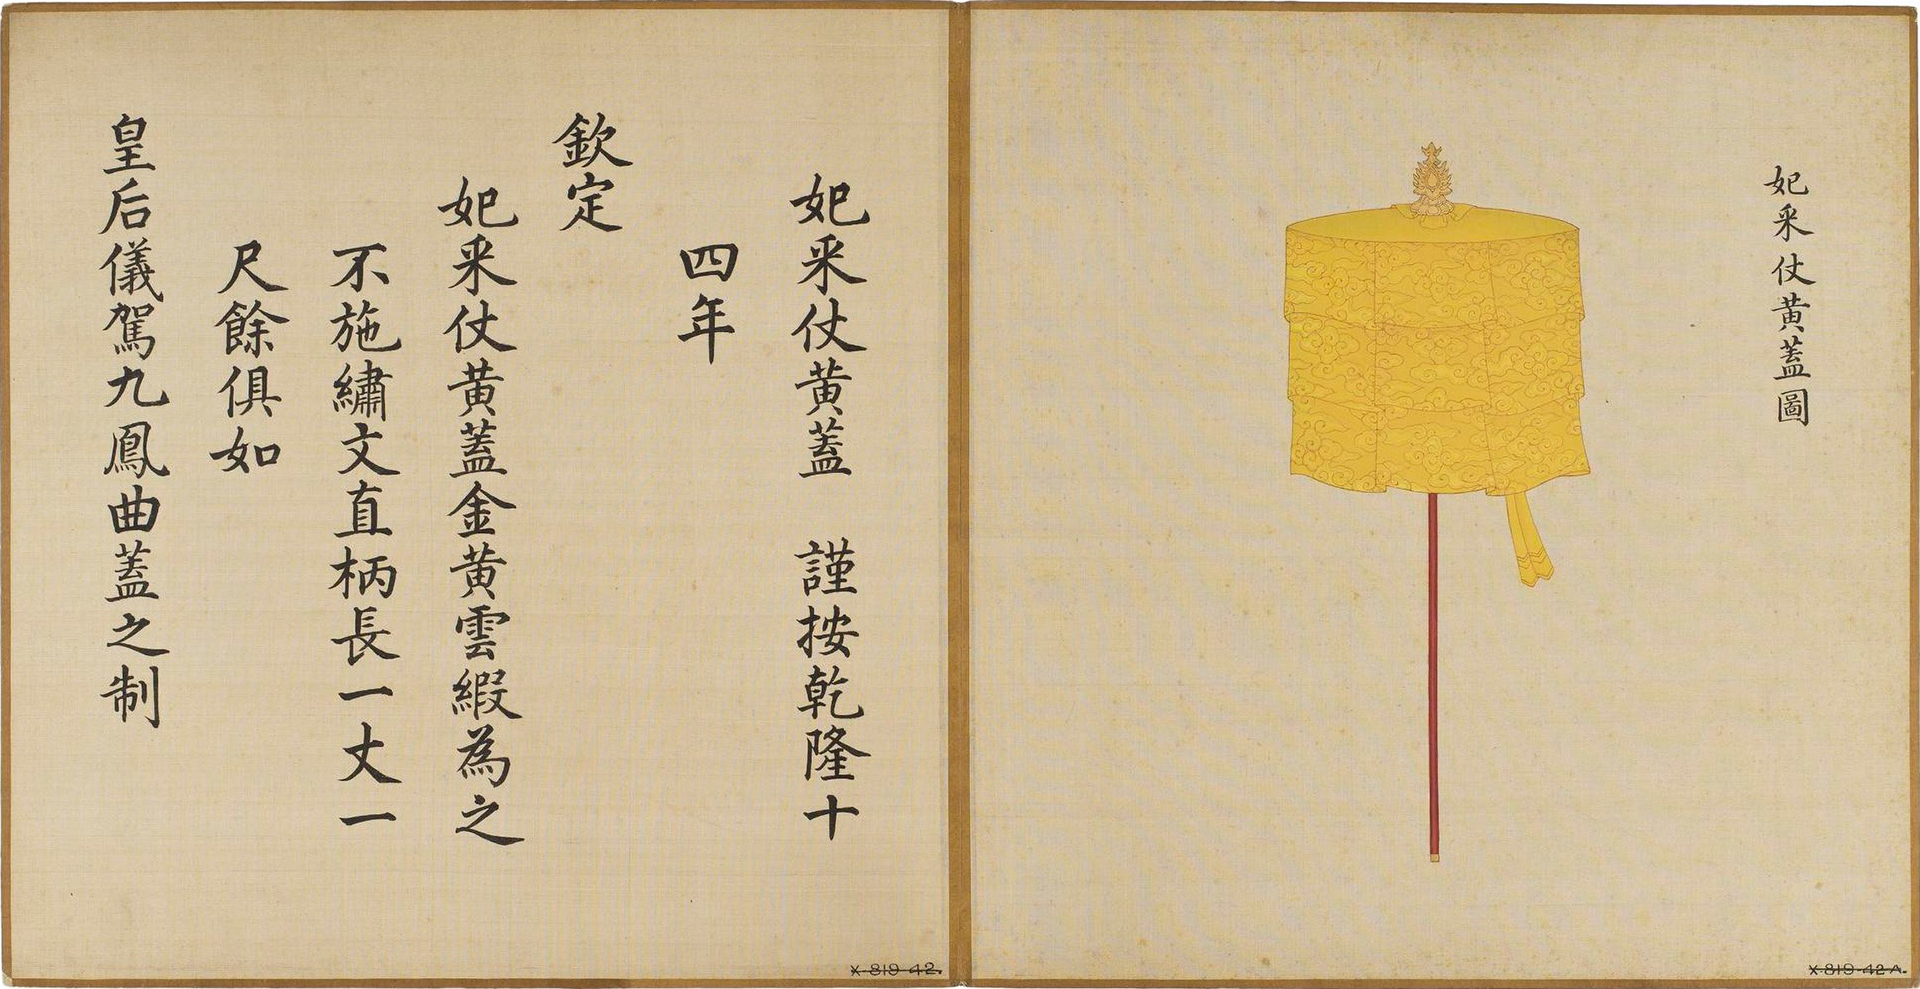 妃采仗黄蓋圖
妃采仗黄蓋　謹按乾隆十
四年
欽定
妃采仗黄蓋金黄雲緞為之
不施繡文直柄長一丈一
尺餘俱如
皇后儀駕九鳳曲蓋之制
X-819-42.
X-819-42 A.